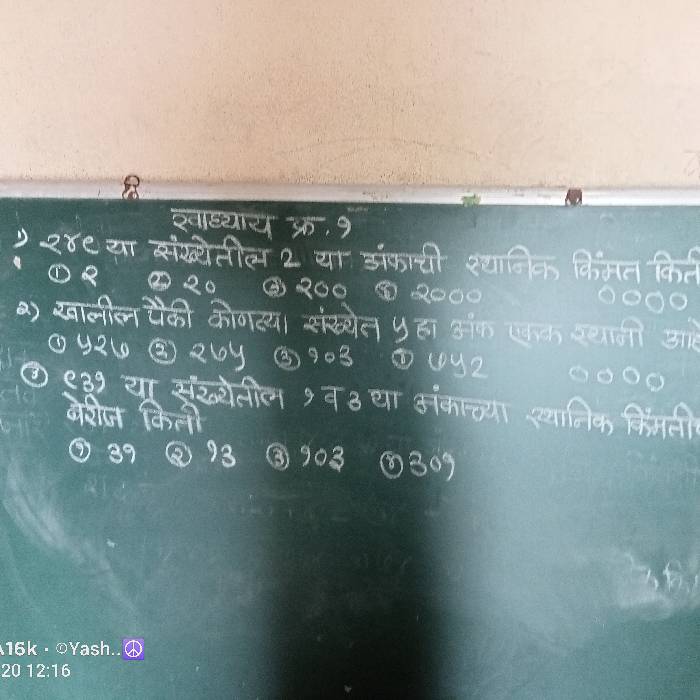 स्वाध्याय क्र. १
१) २४९ या संख्येतील 2 या अंकाची स्थानिक किंमत किती
① २ ② २० ③ २०० ④ २००० ००००
२) खालील पैकी कोणत्या संख्येत ५ हा अंक एकक स्थानी आहे
① ५२७ ② २७५ ③ १०३ ④ ७५2 ००००
③ ९३१ या संख्येतील १ व ३ या अंकाच्या स्थानिक किंमतीची
बेरीज किती
① ३१ ② १३ ③ १०३ ④ ३०१
A16k · ©Yash..☮
20 12:16